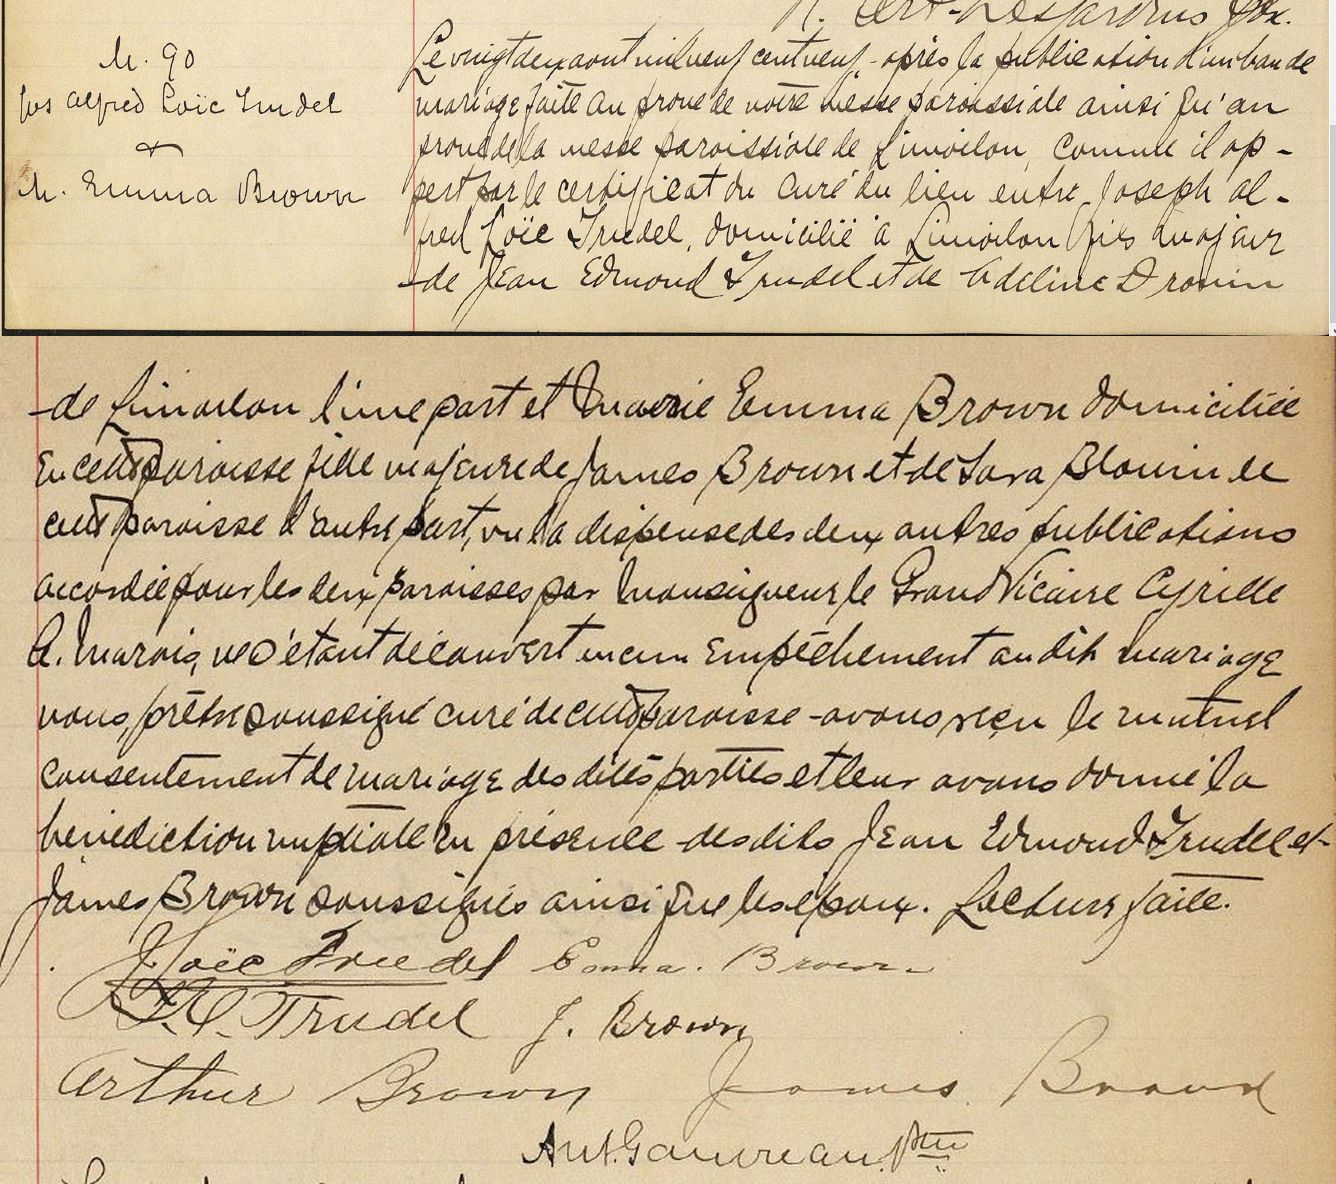 M. 90
Jos Alfred Loïc Trudel
&
M. Emma Brown
Le vingt deux aout mil neuf cent neuf, après la publication d'un ban de
mariage faite au prone de notre messe paroissiale ainsi qu'au
prone de la messe paroissiale de Limoilou, comme il ap-
pert par le certificat du curé du lieu entre Joseph Al-
fred Loïc Trudel, domicilié à Limoilou fils majeur
de Jean Edmond Trudel et de Adeline Drouin
de Limoilou d'une part et Marie Emma Brown domiciliée
en cette paroisse fille majeure de James Brown et de Sara Blouin de
cette paroisse d'autre part, vu la dispense des deux autres publications
accordée pour les deux paroisses par Monseigneur le Grand Vicaire Cyrille
A. Marois, ne s'étant découvert aucun empêchement au dit mariage
nous, prêtre soussigné curé de cette paroisse avons reçu le mutuel
consentement de mariage des dites parties et leur avons donné la
bénédiction nuptiale en présence des dits Jean Edmond Trudel et
James Brown soussignés ainsi que les époux. Lecture faite.
J. Loïc Trudel Emma Brown
J. E. Trudel J. Brown
Arthur Brown James Brown
Ant. Gauvreau Ptre